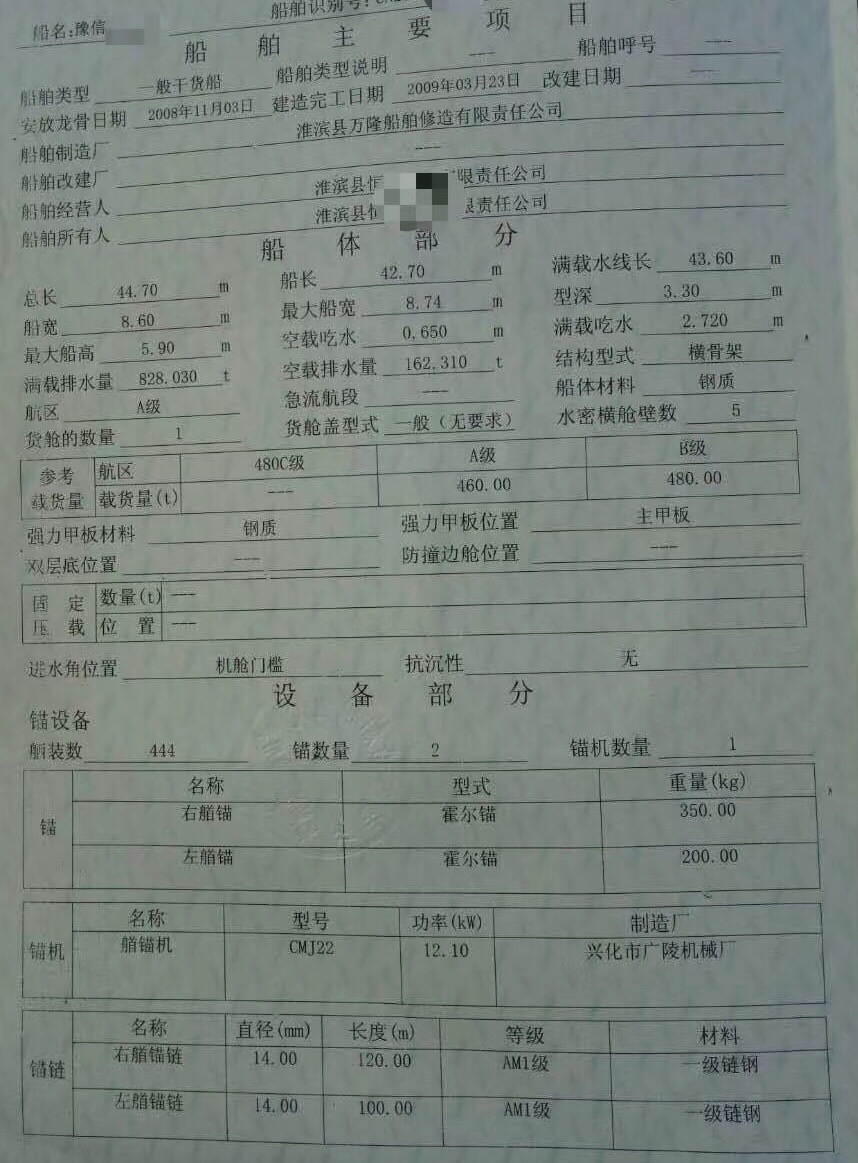 船舶识别号:
船名:豫信
船舶主要项目
船舶类型 一般干货船 船舶类型说明 --- 船舶呼号 ---
安放龙骨日期 2008年11月03日 建造完工日期 2009年03月23日 改建日期 ---
船舶制造厂 淮滨县万隆船舶修造有限责任公司
船舶改建厂 ---
船舶经营人 淮滨县恒 有限责任公司
船舶所有人 淮滨县恒 限责任公司
船体部分
总长 44.70 m 船长 42.70 m 满载水线长 43.60 m
船宽 8.60 m 最大船宽 8.74 m 型深 3.30 m
最大船高 5.90 m 空载吃水 0.650 m 满载吃水 2.720 m
满载排水量 828.030 t 空载排水量 162.310 t 结构型式 横骨架
航区 A级 急流航段 --- 船体材料 钢质
货舱的数量 1 货舱盖型式 一般（无要求） 水密横舱壁数 5
参考载货量 航区 480C级 A级 B级
载货量(t) --- 460.00 480.00
强力甲板材料 钢质 强力甲板位置 主甲板
双层底位置 --- 防撞边舱位置 ---
固定压载 数量(t) ---
位置 ---
进水角位置 机舱门槛 抗沉性 无
设备部分
锚设备
舾装数 444 锚数量 2 锚机数量 1
锚 名称 型式 重量(kg)
右艏锚 霍尔锚 350.00
左艏锚 霍尔锚 200.00
锚机 名称 型号 功率(kW) 制造厂
艏锚机 CMJ22 12.10 兴化市广陵机械厂
锚链 名称 直径(mm) 长度(m) 等级 材料
右艏锚链 14.00 120.00 AM1级 一级链钢
左艏锚链 14.00 100.00 AM1级 一级链钢